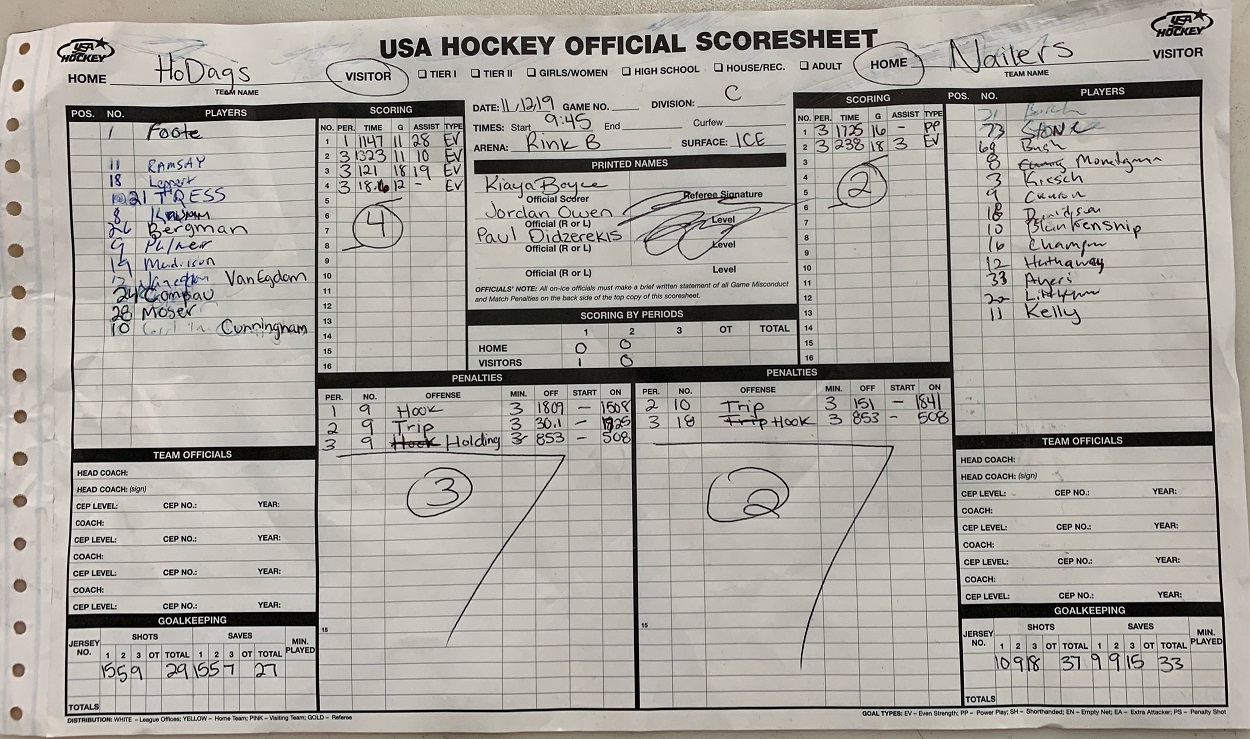 USA HOCKEY OFFICIAL SCORESHEET
USA HOCKEY
USA HOCKEY
HOME HoDags VISITOR
TEAM NAME
☐ TIER I ☐ TIER II ☐ GIRLS/WOMEN ☐ HIGH SCHOOL ☐ HOUSE/REC. ☐ ADULT
HOME Nailers VISITOR
TEAM NAME
POS. NO. PLAYERS
1 Foote
11 RAMSAY
18
21 TRESS
8
26 Bergman
9 Palmer
19 Madison
VanEgdom
24 Compau
28 Moser
10 Cunningham
SCORING
NO. PER. TIME G ASSIST TYPE
1 1 1147 11 28 EV
2 3 1323 11 10 EV
3 3 121 18 19 EV
4 3 18.6 12 - EV
5
6
7
8
9
10
11
12
13
14
15
16
4
DATE: 11/12/19 GAME NO. DIVISION: C
TIMES: Start 9:45 End Curfew
ARENA: Rink B SURFACE: ICE
PRINTED NAMES
Kiaya Boyce
Official Scorer Referee Signature
Jordan Owen
Official (R or L) Level
Paul Didzerekis
Official (R or L) Level
Official (R or L) Level
OFFICIALS' NOTE: All on-ice officials must make a brief written statement of all Game Misconduct
and Match Penalties on the back side of the top copy of this scoresheet.
SCORING BY PERIODS
1 2 3 OT TOTAL
HOME 0 0
VISITORS 1 0
SCORING
NO. PER. TIME G ASSIST TYPE
1 3 1725 16 - PP
2 3 238 18 3 EV
3
4
5
6
7
8
9
10
11
12
13
14
15
16
2
POS. NO. PLAYERS
73 STONE
69 Bush
8 Monedgman
3 Kirsch
9
18 Davidson
10 Blankenship
16 Champm
12 Hathaway
33 Ayers
22
11 Kelly
PENALTIES
PER. NO. OFFENSE MIN. OFF START ON
1 9 Hook 3 1809 - 1508
2 9 Trip 3 30.1 - 1725
3 9 Hook Holding 3 853 - 508
15
3
PENALTIES
PER. NO. OFFENSE MIN. OFF START ON
2 10 Trip 3 151 - 1841
3 18 Trip HOOK 3 853 - 508
15
2
TEAM OFFICIALS
HEAD COACH:
HEAD COACH: (sign)
CEP LEVEL: CEP NO.: YEAR:
COACH:
CEP LEVEL: CEP NO.: YEAR:
COACH:
CEP LEVEL: CEP NO.: YEAR:
COACH:
CEP LEVEL: CEP NO.: YEAR:
GOALKEEPING
JERSEY NO. SHOTS SAVES MIN. PLAYED
1 2 3 OT TOTAL 1 2 3 OT TOTAL
15 5 9 29 15 5 7 27
TOTALS
TEAM OFFICIALS
HEAD COACH:
HEAD COACH: (sign)
CEP LEVEL: CEP NO.: YEAR:
COACH:
CEP LEVEL: CEP NO.: YEAR:
COACH:
CEP LEVEL: CEP NO.: YEAR:
COACH:
CEP LEVEL: CEP NO.: YEAR:
GOALKEEPING
JERSEY NO. SHOTS SAVES MIN. PLAYED
1 2 3 OT TOTAL 1 2 3 OT TOTAL
10 9 18 37 9 9 15 33
TOTALS
DISTRIBUTION: WHITE – League Offices; YELLOW – Home Team; PINK – Visiting Team; GOLD – Referee
GOAL TYPES: EV – Even Strength; PP – Power Play; SH – Shorthanded; EN – Empty Net; EA – Extra Attacker; PS – Penalty Shot